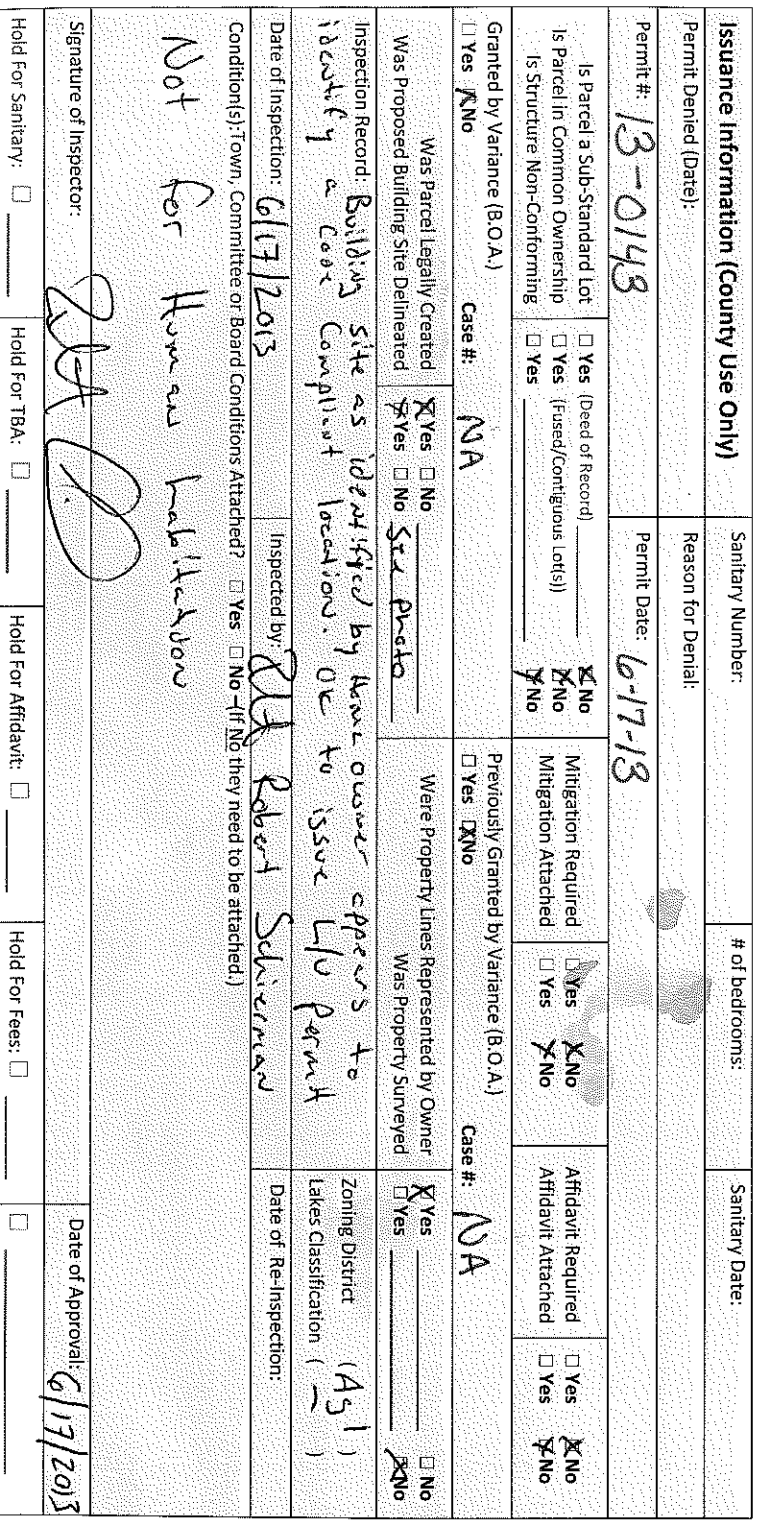 Issuance Information (County Use Only) Sanitary Number: # of bedrooms: Sanitary Date:
Permit Denied (Date): Reason for Denial:
Permit #: 13-0148 Permit Date: 6-17-13
Is Parcel a Sub-Standard Lot ☐ Yes (Deed of Record) ☒ No
Is Parcel in Common Ownership ☐ Yes (Fused/Contiguous Lot(s)) ☒ No
Is Structure Non-Conforming ☐ Yes ☒ No
Mitigation Required ☐ Yes ☒ No
Mitigation Attached ☐ Yes ☒ No
Affidavit Required ☐ Yes ☒ No
Affidavit Attached ☐ Yes ☒ No
Granted by Variance (B.O.A.)
☐ Yes ☒ No Case #: NA
Previously Granted by Variance (B.O.A.)
☐ Yes ☒ No Case #: NA
Was Parcel Legally Created ☒ Yes ☐ No
Was Proposed Building Site Delineated ☒ Yes ☐ No See photo
Were Property Lines Represented by Owner ☒ Yes ☐ No
Was Property Surveyed ☐ Yes ☒ No
Inspection Record: Building site as identified by Home owner appears to
identify a Code Compliant location. OK to issue L/U Permit
Zoning District (Ag1)
Lakes Classification ( — )
Date of Inspection: 6/17/2013 Inspected by: Robert Schierman Date of Re-Inspection:
Condition(s): Town, Committee or Board Conditions Attached? ☐ Yes ☐ No – (If No they need to be attached.)
Not for Human habitation
Signature of Inspector: Date of Approval: 6/17/2013
Hold For Sanitary: ☐ Hold For TBA: ☐ Hold For Affidavit: ☐ Hold For Fees: ☐ ☐